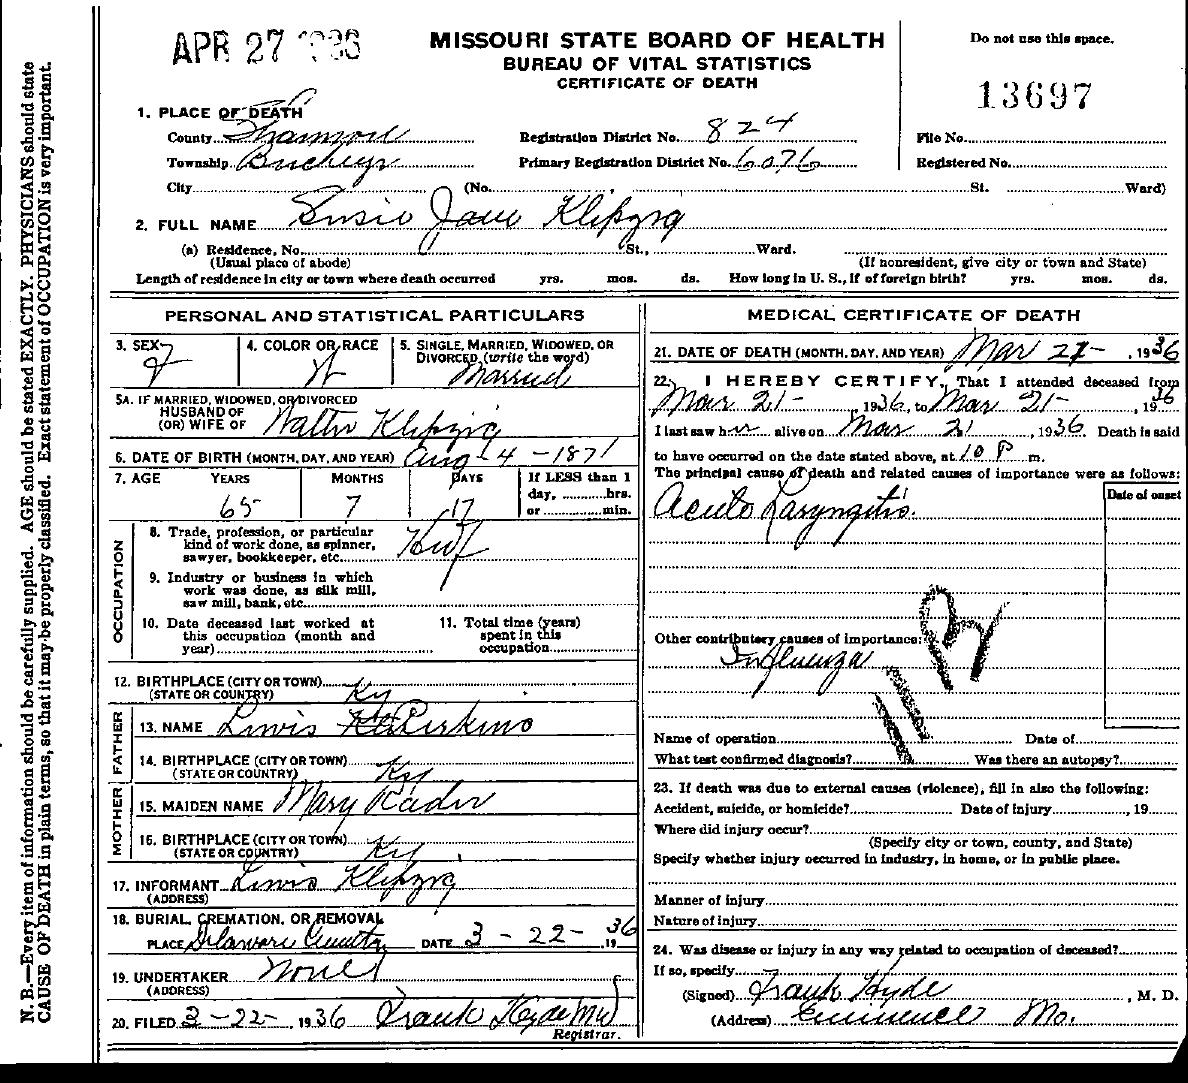 N. B.—Every item of information should be carefully supplied. AGE should be stated EXACTLY. PHYSICIANS should state
CAUSE OF DEATH in plain terms, so that it may be properly classified. Exact statement of OCCUPATION is very important.
APR 27 1936
MISSOURI STATE BOARD OF HEALTH
BUREAU OF VITAL STATISTICS
CERTIFICATE OF DEATH
Do not use this space.
13697
1. PLACE OF DEATH
County Shannon Registration District No. 824 File No.
Township Primary Registration District No. 6076 Registered No.
City (No. , St. Ward)
2. FULL NAME Susie Jane Klipzig
(a) Residence, No. St., Ward.
(Usual place of abode) (If nonresident, give city or town and State)
Length of residence in city or town where death occurred yrs. mos. ds. How long in U. S., if of foreign birth? yrs. mos. ds.
PERSONAL AND STATISTICAL PARTICULARS
3. SEX F 4. COLOR OR RACE W 5. SINGLE, MARRIED, WIDOWED, OR
DIVORCED (write the word)
Married
5A. IF MARRIED, WIDOWED, OR DIVORCED
HUSBAND OF
(OR) WIFE OF Walter Klipzig
6. DATE OF BIRTH (MONTH, DAY, AND YEAR) Aug - 4 - 1871
7. AGE YEARS MONTHS DAYS If LESS than 1
day, hrs.
or min.
65 7 17
OCCUPATION
8. Trade, profession, or particular
kind of work done, as spinner,
sawyer, bookkeeper, etc. Hwf
9. Industry or business in which
work was done, as silk mill,
saw mill, bank, etc.
10. Date deceased last worked at
this occupation (month and
year)
11. Total time (years)
spent in this
occupation
12. BIRTHPLACE (CITY OR TOWN)
(STATE OR COUNTRY) Ky
FATHER
13. NAME Lewis Perkins
14. BIRTHPLACE (CITY OR TOWN)
(STATE OR COUNTRY) Ky
MOTHER
15. MAIDEN NAME Mary Rader
16. BIRTHPLACE (CITY OR TOWN)
(STATE OR COUNTRY) Ky
17. INFORMANT Lewis Klipzig
(ADDRESS)
18. BURIAL, CREMATION, OR REMOVAL
PLACE Delaware County DATE 3 - 22 - 1936
19. UNDERTAKER None
(ADDRESS)
20. FILED 3-22-, 1936 Frank Hyde MD
Registrar.
MEDICAL CERTIFICATE OF DEATH
21. DATE OF DEATH (MONTH, DAY, AND YEAR) Mar 21-, 1936
22. I HEREBY CERTIFY, That I attended deceased from
Mar 21-, 1936, to Mar 21-, 1936
I last saw her alive on Mar 21, 1936. Death is said
to have occurred on the date stated above, at 10 P m.
The principal cause of death and related causes of importance were as follows:
Date of onset
Acute Laryngitis.
Other contributory causes of importance:
Influenza
Name of operation Date of
What test confirmed diagnosis? Was there an autopsy?
23. If death was due to external causes (violence), fill in also the following:
Accident, suicide, or homicide? Date of injury , 19
Where did injury occur?
(Specify city or town, county, and State)
Specify whether injury occurred in industry, in home, or in public place.
Manner of injury
Nature of injury
24. Was disease or injury in any way related to occupation of deceased?
If so, specify
(Signed) Frank Hyde , M. D.
(Address) Eminence Mo.